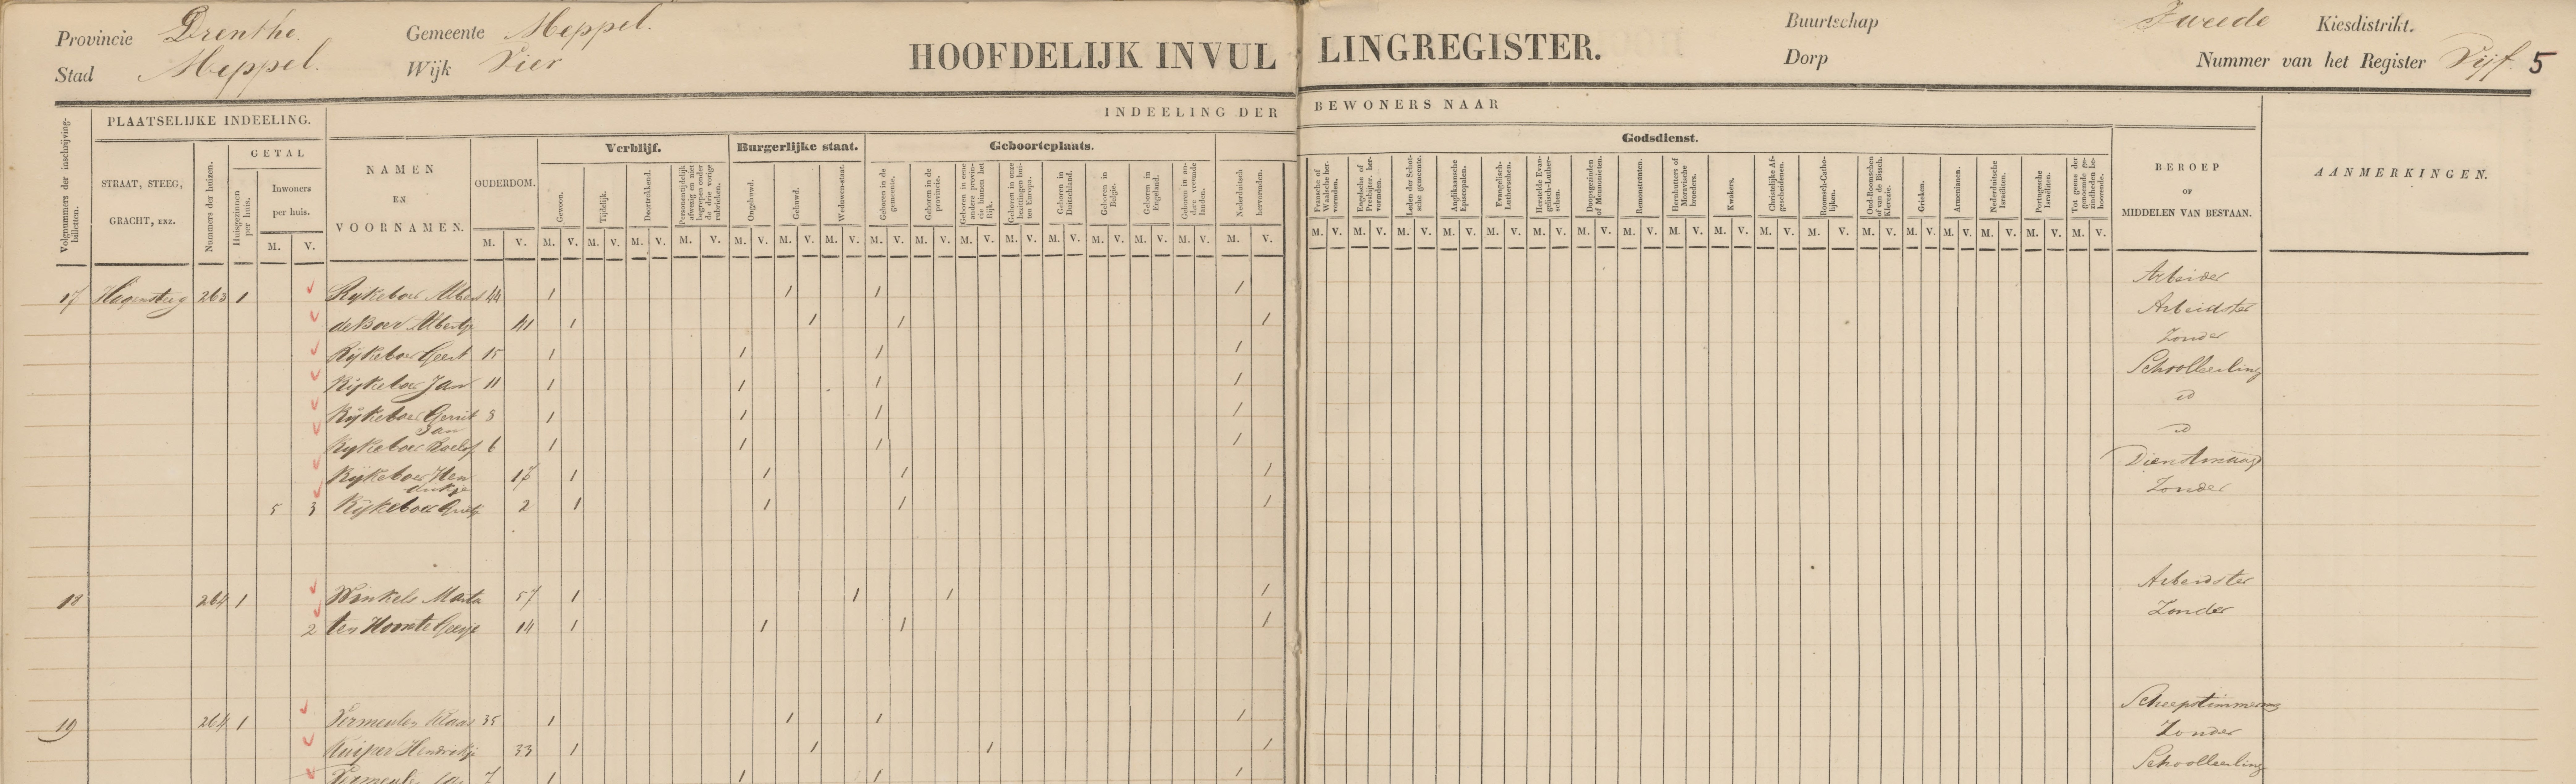 Provincie Drenthe. Gemeente Meppel. Buurtschap Tweede Kiesdistrikt.
Stad Meppel. Wijk Vier HOOFDELIJK INVULLINGREGISTER. Dorp Nummer van het Register Vijf 5
INDEELING DER BEWONERS NAAR
Volgnummers der inschrijvingbilletten.
PLAATSELIJKE INDEELING.
STRAAT, STEEG,
GRACHT, ENZ.
Nummers der huizen.
GETAL
Huisgezinnen per huis.
Inwoners
per huis.
M. V.
NAMEN
EN
VOORNAMEN.
OUDERDOM.
M. V.
Verblijf.
Gewoon. M. V.
Tijdelijk. M. V.
Doortrekkend. M. V.
M. V.
Burgerlijke staat.
Ongehuwd. M. V.
Gehuwd. M. V.
Weduwen-staat. M. V.
Geboorteplaats.
Geboren in de gemeente. M. V.
Geboren in de provincie. M. V.
Geboren in eene andere provincie binnen het Rijk. M. V.
Geboren in onze bezittingen buiten Europa. M. V.
Geboren in Duitschland. M. V.
Geboren in Belgie. M. V.
Geboren in Engeland. M. V.
Geboren in andere vreemde landen. M. V.
Godsdienst.
Nederduitsch hervormden. M. V.
Fransche of Waalsche hervormden. M. V.
Engelsche of Presbijter. hervormden. M. V.
Leden der Schotsche gemeente. M. V.
Anglikaansche Episcopalen. M. V.
Evangelisch-Lutherschen. M. V.
Herstelde Evangelisch-Lutherschen. M. V.
Doopsgezinden of Mennonieten. M. V.
Remonstranten. M. V.
Hernhutters of Moravische broeders. M. V.
Kwakers. M. V.
Christelijke Afgescheidenen. M. V.
Roomsch-Catholijken. M. V.
Oud-Roomschen of van de Bissch. Klerezie. M. V.
Grieken. M. V.
Armenianen. M. V.
Nederduitsche Israëliten. M. V.
Portugesche Israëliten. M. V.
Tot geene der genoemde gezindheden behoorende. M. V.
BEROEP
OF
MIDDELEN VAN BESTAAN.
AANMERKINGEN.
17 Hagensteeg 263 1 Rijkeboer Albert 44 1 1 1 1 Arbeider
de Boer Albertje 41 1 1 1 1 Arbeidster
Rijkeboer Geert 15 1 1 1 1 Zonder
Rijkeboer Jan 11 1 1 1 1 Schoolleerling
Rijkeboer Gerrit Jan 1 1 1 1 id
Rijkeboer Roelof 6 1 1 1 1 id
Rijkeboer Hendrikje 17 1 1 1 1 Dienstmaagd
5 3 Rijkeboer 2 1 1 1 1 Zonder
18 264 1 Winkels Marta 57 1 1 1 1 Arbeidster
2 ten 14 1 1 1 1 Zonder
19 264 1 Vermeulen Klaas 35 1 1 1 1 Scheepstimmerman
Kuiper Hendrikje 33 1 1 1 1 Zonder
Vermeulen 7 1 1 1 1 Schoolleerling